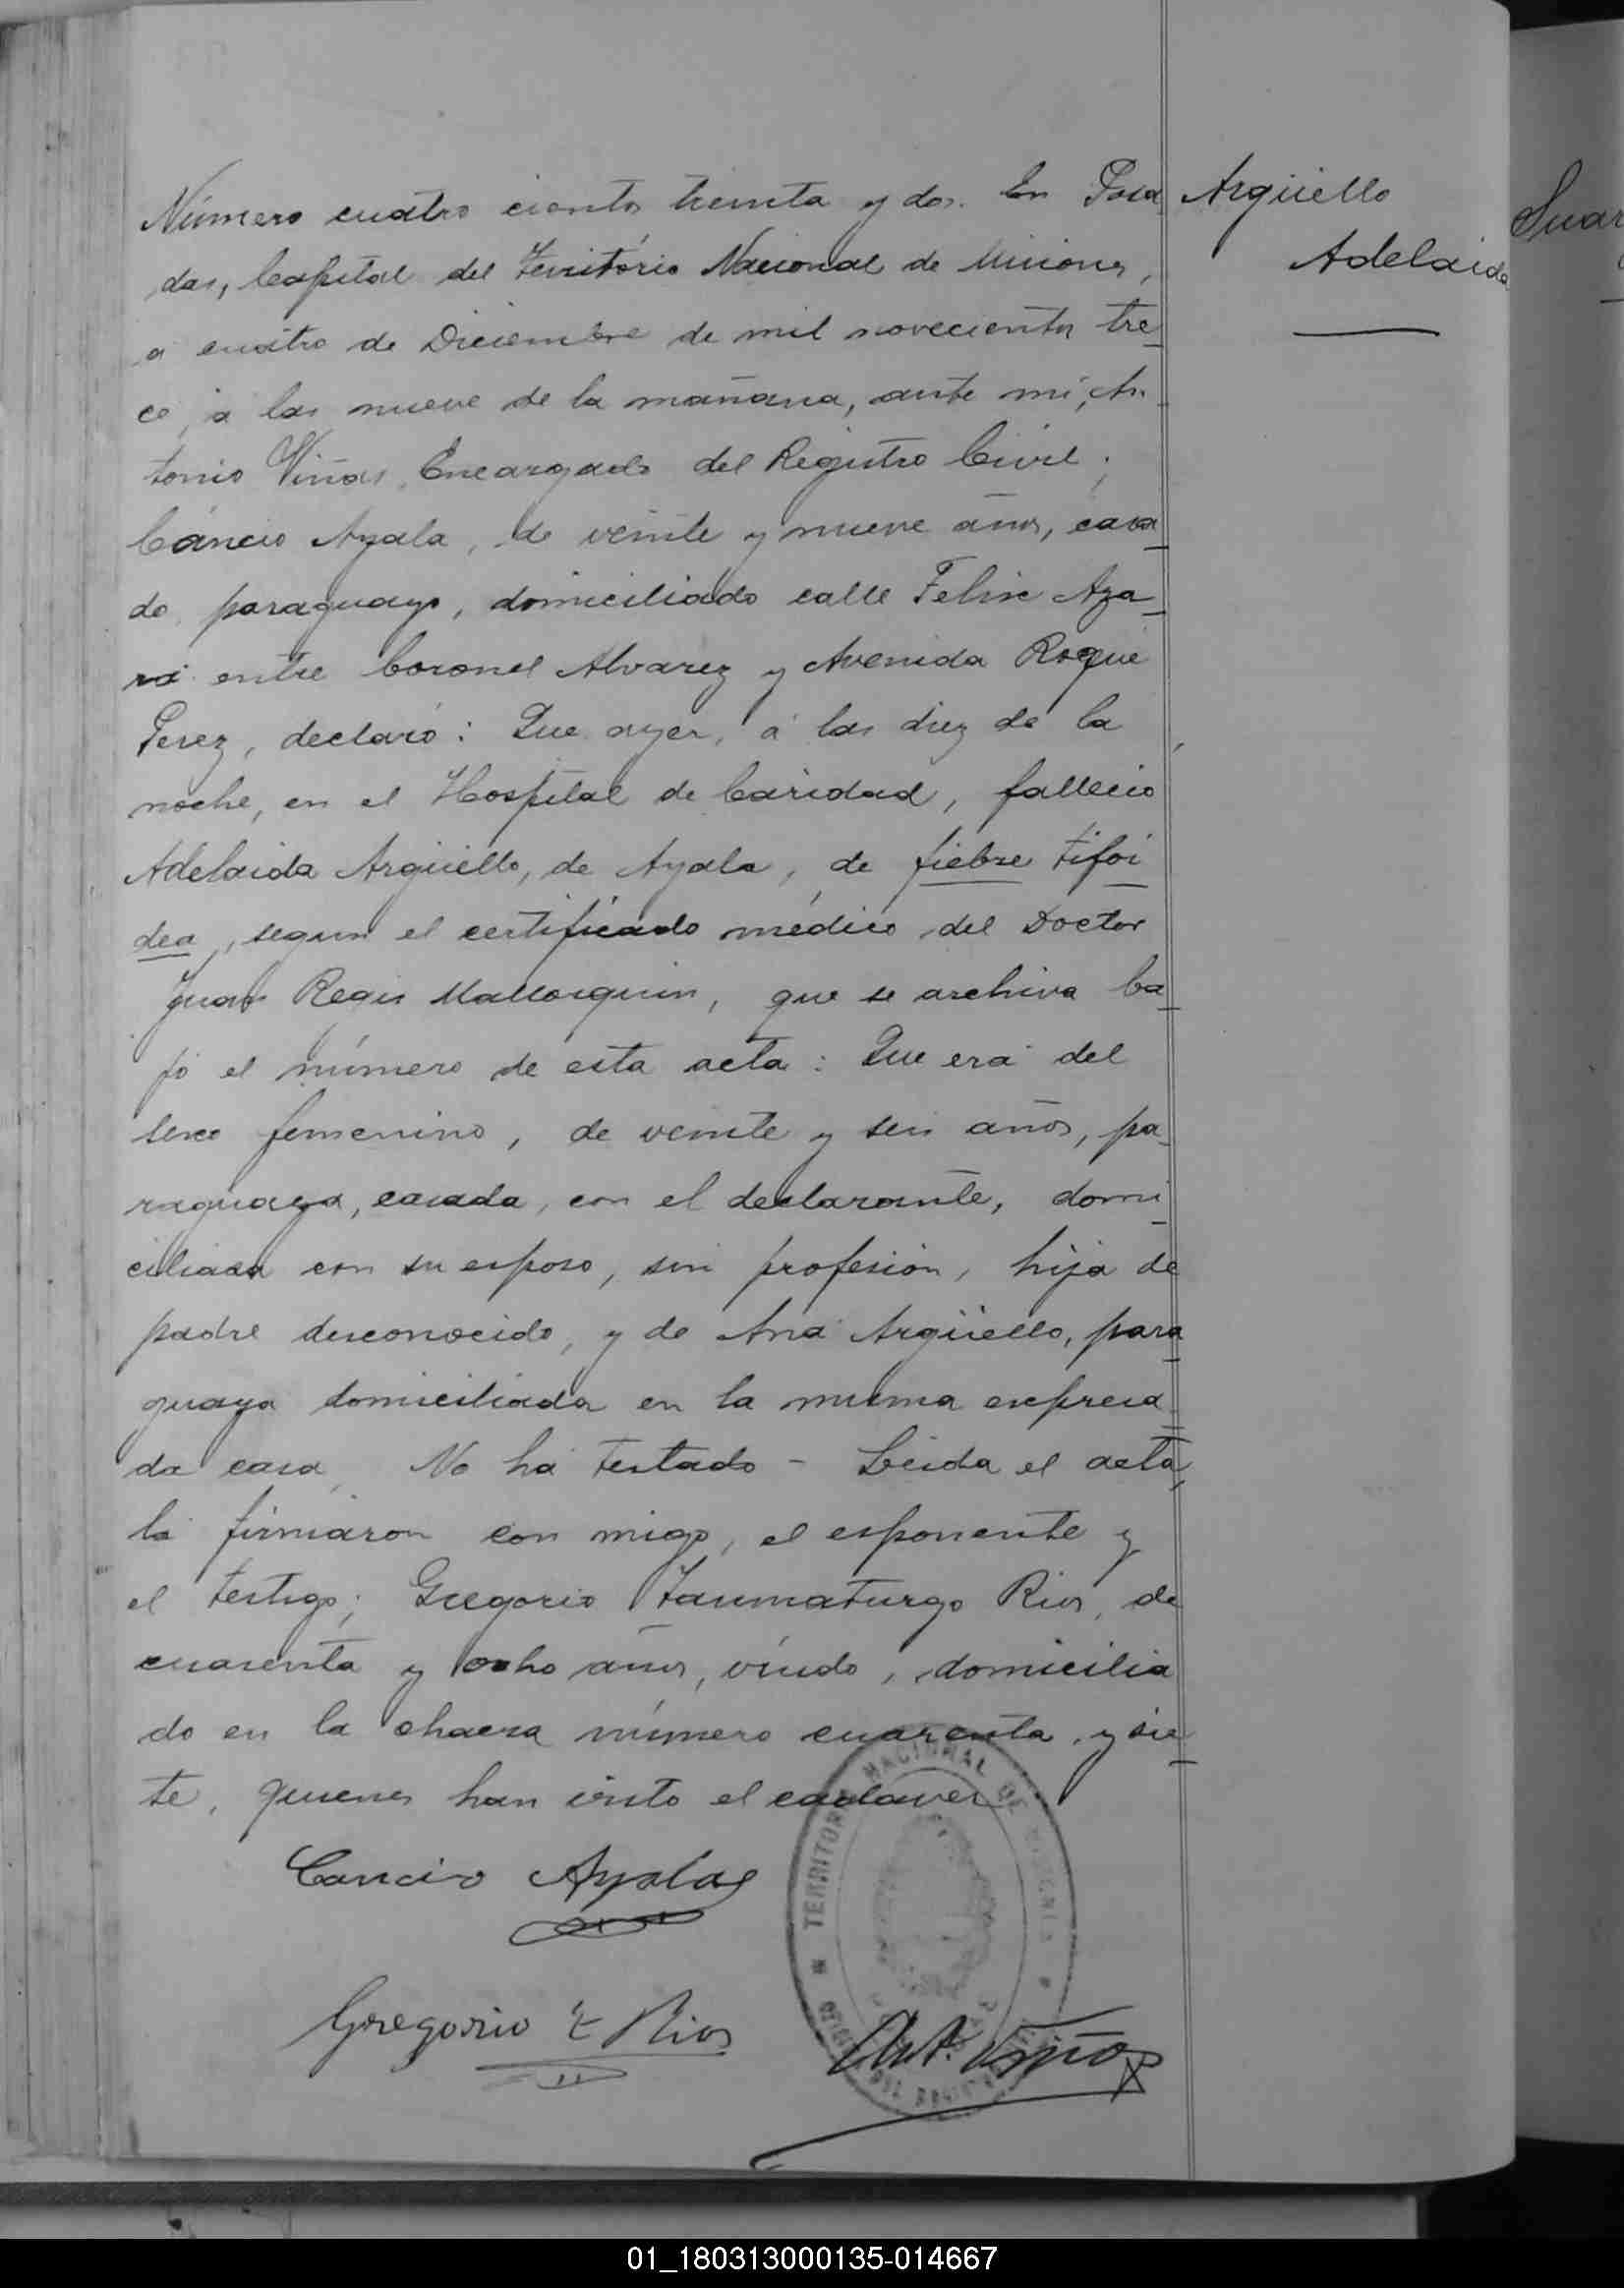 Número cuatro cientos treinta y dos. En Posa
das, Capital del Território Nacional de Misiones,
a cuatro de Diciembre de mil novecientos tre
ce, á las nueve de la mañana, ante mi, An
tonio Viñas, Encargado del Registro Civil;
Cáncio Ayala, de veinte y nueve años, casa
do, paraguayo, domiciliado calle Felix Aza
ra entre Coronel Alvarez y Avenida Roque
Perez, declaró: Que ayer, á las diez de la
noche, en el Hospital de Caridad, falleció
Adelaida Argüello, de Ayala, de fiebre tifoi
dea, segun el certificado médico del Doctor
Juan Regis Mallorquin, que se archiva ba
jo el número de esta acta: Que era del
sexo femenino, de veinte y seis años, pa
raguaya, casada, con el declarante, domi
ciliada con su esposo, sin profesión, hija de
padre desconocido, y de Ana Argüello, para
guaya domiciliada en la misma expresa
da casa, No ha testado - Leida el acta,
la firmaron con migo, el esponente y
el testigo; Gregorio Taumaturgo Rios, de
cuarenta y ocho años, viudo, domicilia
do en la chacra número cuarenta y sie
te, quienes han visto el cadaver.
Cancio Ayala
Gregorio T Rios
Ant. Viñas
TERRITORIO NACIONAL DE MISIONES
Argüello
Adelaida
Suar
01_180313000135-014667